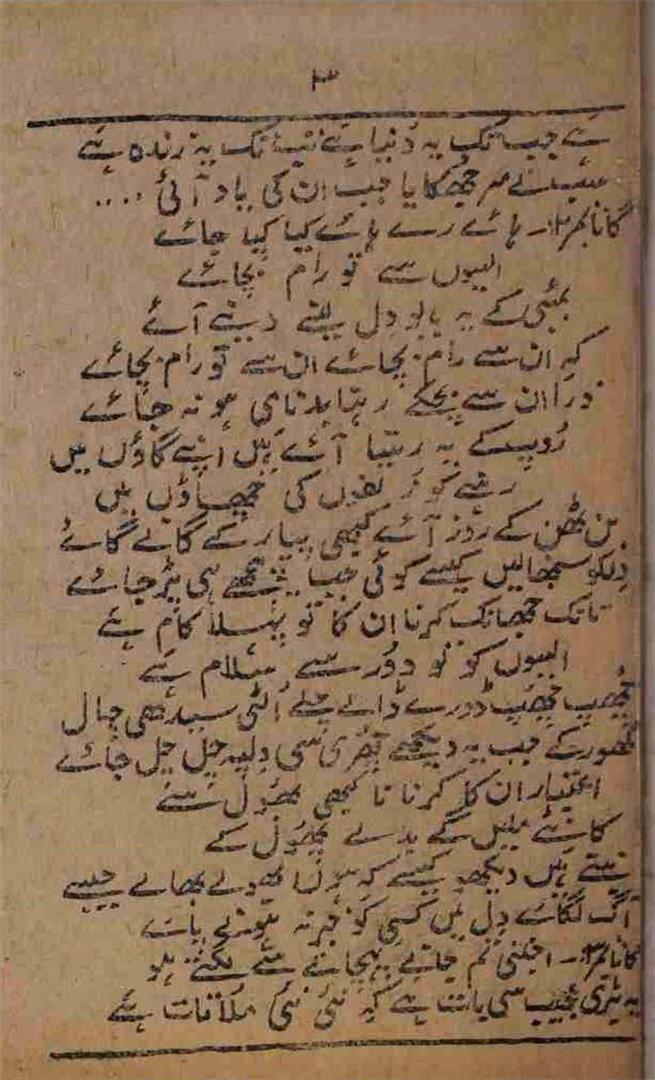 ۳
ہے جب تک یہ دُنیا ہے تب تک یہ زندہ ہے
سب نے سر جھُکایا جب ان کی یاد آئی ....
گانا نمبر ۲:۔ ہائے رے ہائے کیا کیا جائے
ایسوں سے تو رام بچائے
بمبئی کے یہ بابو دل لینے دینے آئے
کہ ان سے رام بچائے ان سے تو رام بچائے
ذرا ان سے بچکے رہنا بدنامی ہو نہ جائے
رُوپ کے یہ رسیا آئے ہیں اپنے گاؤں میں
رہنے کو زلفوں کی چھاؤں میں
بن ٹھن کے روز آئے کبھی پیار کے گانے گائے
دِلکو سمبھالیں کیسے کوئی جب پیچھے ہی پڑ جائے
تانک جھانک کرنا ان کا تو پہلا کام ہے
ایسوں کو تو دُور سے سلام ہے
چھُپ چھُپ ڈورے ڈالے چلے اُلٹی سیدھی چال
گھور کے جب یہ دیکھے چھُری سی دِلپہ چل چل جائے
اعتبار ان کا کرنا نا کبھی بھُول سے
کانٹے ملیں گے بدلے پھُول کے
بنتے ہیں دیکھو کیسے کہ ہوں بھولے بھالے جیسے
آگ لگائے دِل میں کسی کو خبر نہ ہونے پائے
گانا نمبر ۳:۔ اجنبی تم جانے پہچانے سے لگتے ہو
یہ بڑی عجیب سی بات ہے کہ نئی نئی ملاقات ہے